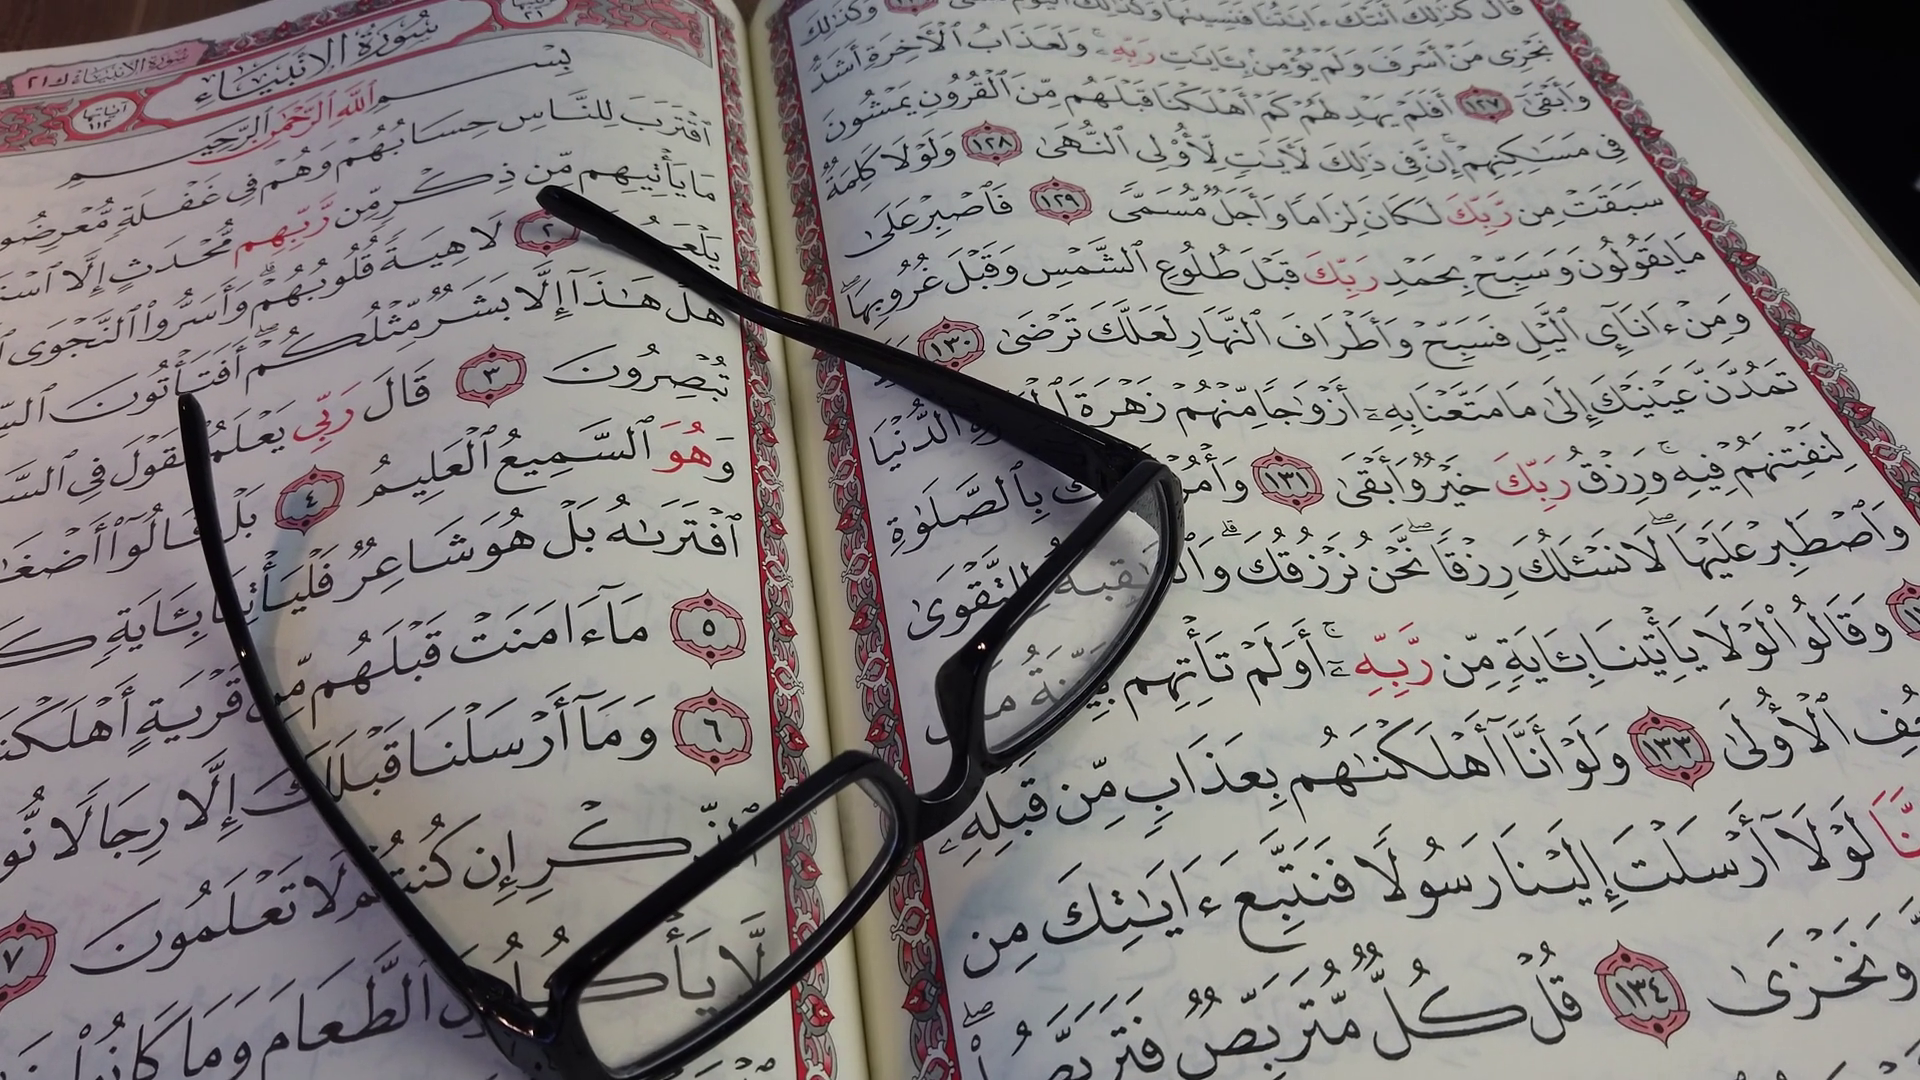 قَالَ كَذَٰلِكَ أَتَتْكَ ءَايَٰتُنَا فَنَسِيتَهَا وَكَذَٰلِكَ ٱلْيَوْمَ تُنسَىٰ ١٢٦ وَكَذَٰلِكَ
نَجْزِى مَنْ أَسْرَفَ وَلَمْ يُؤْمِنۢ بِـَٔايَٰتِ رَبِّهِۦ وَلَعَذَابُ ٱلْءَاخِرَةِ أَشَدُّ
وَأَبْقَىٰٓ ١٢٧ أَفَلَمْ يَهْدِ لَهُمْ كَمْ أَهْلَكْنَا قَبْلَهُم مِّنَ ٱلْقُرُونِ يَمْشُونَ
فِى مَسَٰكِنِهِمْ إِنَّ فِى ذَٰلِكَ لَءَايَٰتٍ لِّأُو۟لِى ٱلنُّهَىٰ ١٢٨ وَلَوْلَا كَلِمَةٌ
سَبَقَتْ مِن رَّبِّكَ لَكَانَ لِزَامًا وَأَجَلٌ مُّسَمًّى ١٢٩ فَٱصْبِرْ عَلَىٰ
مَا يَقُولُونَ وَسَبِّحْ بِحَمْدِ رَبِّكَ قَبْلَ طُلُوعِ ٱلشَّمْسِ وَقَبْلَ غُرُوبِهَا ۖ
وَمِنْ ءَانَآئِ ٱلَّيْلِ فَسَبِّحْ وَأَطْرَافَ ٱلنَّهَارِ لَعَلَّكَ تَرْضَىٰ ١٣٠
تَمُدَّنَّ عَيْنَيْكَ إِلَىٰ مَا مَتَّعْنَا بِهِۦٓ أَزْوَٰجًا مِّنْهُمْ زَهْرَةَ ٱلدُّنْيَا
لِنَفْتِنَهُمْ فِيهِ ۚ وَرِزْقُ رَبِّكَ خَيْرٌ وَأَبْقَىٰ ١٣١ وَأْمُرْ بِٱلصَّلَوٰةِ
وَٱصْطَبِرْ عَلَيْهَا ۖ لَا نَسْـَٔلُكَ رِزْقًا ۖ نَّحْنُ نَرْزُقُكَ ۗ وَٱلْعَٰقِبَةُ لِلتَّقْوَىٰ
وَقَالُوا۟ لَوْلَا يَأْتِينَا بِـَٔايَةٍ مِّن رَّبِّهِۦٓ ۚ أَوَلَمْ تَأْتِهِم بَيِّنَةُ مَا
ٱلْأُولَىٰ ١٣٣ وَلَوْ أَنَّآ أَهْلَكْنَٰهُم بِعَذَابٍ مِّن قَبْلِهِۦ
لَوْلَآ أَرْسَلْتَ إِلَيْنَا رَسُولًا فَنَتَّبِعَ ءَايَٰتِكَ مِن
وَنَخْزَىٰ ١٣٤ قُلْ كُلٌّ مُّتَرَبِّصٌ فَتَرَبَّصُوا۟ ۖ
سُورَةُ الأنبياء ك٢١
سُورَةُ الأَنبِيَاءِ
آياتها ١١٢
بِسْمِ ٱللَّهِ ٱلرَّحْمَٰنِ ٱلرَّحِيمِ
ٱقْتَرَبَ لِلنَّاسِ حِسَابُهُمْ وَهُمْ فِى غَفْلَةٍ
مَا يَأْتِيهِم مِّن ذِكْرٍ مِّن رَّبِّهِم مُّحْدَثٍ إِلَّا
٢ لَاهِيَةً قُلُوبُهُمْ ۗ وَأَسَرُّوا۟ ٱلنَّجْوَى
هَلْ هَٰذَآ إِلَّا بَشَرٌ مِّثْلُكُمْ ۖ أَفَتَأْتُونَ
تُبْصِرُونَ ٣ قَالَ رَبِّى يَعْلَمُ ٱلْقَوْلَ فِى
وَهُوَ ٱلسَّمِيعُ ٱلْعَلِيمُ ٤ بَلْ قَالُوٓا۟
ٱفْتَرَىٰهُ بَلْ هُوَ شَاعِرٌ فَلْيَأْتِنَا بِـَٔايَةٍ
٥ مَآ ءَامَنَتْ قَبْلَهُم مِّن قَرْيَةٍ
٦ وَمَآ أَرْسَلْنَا قَبْلَكَ إِلَّا رِجَالًا
ٱلذِّكْرِ إِن كُنتُمْ لَا تَعْلَمُونَ ٧
لَّا يَأْكُلُونَ ٱلطَّعَامَ وَمَا كَانُوا۟